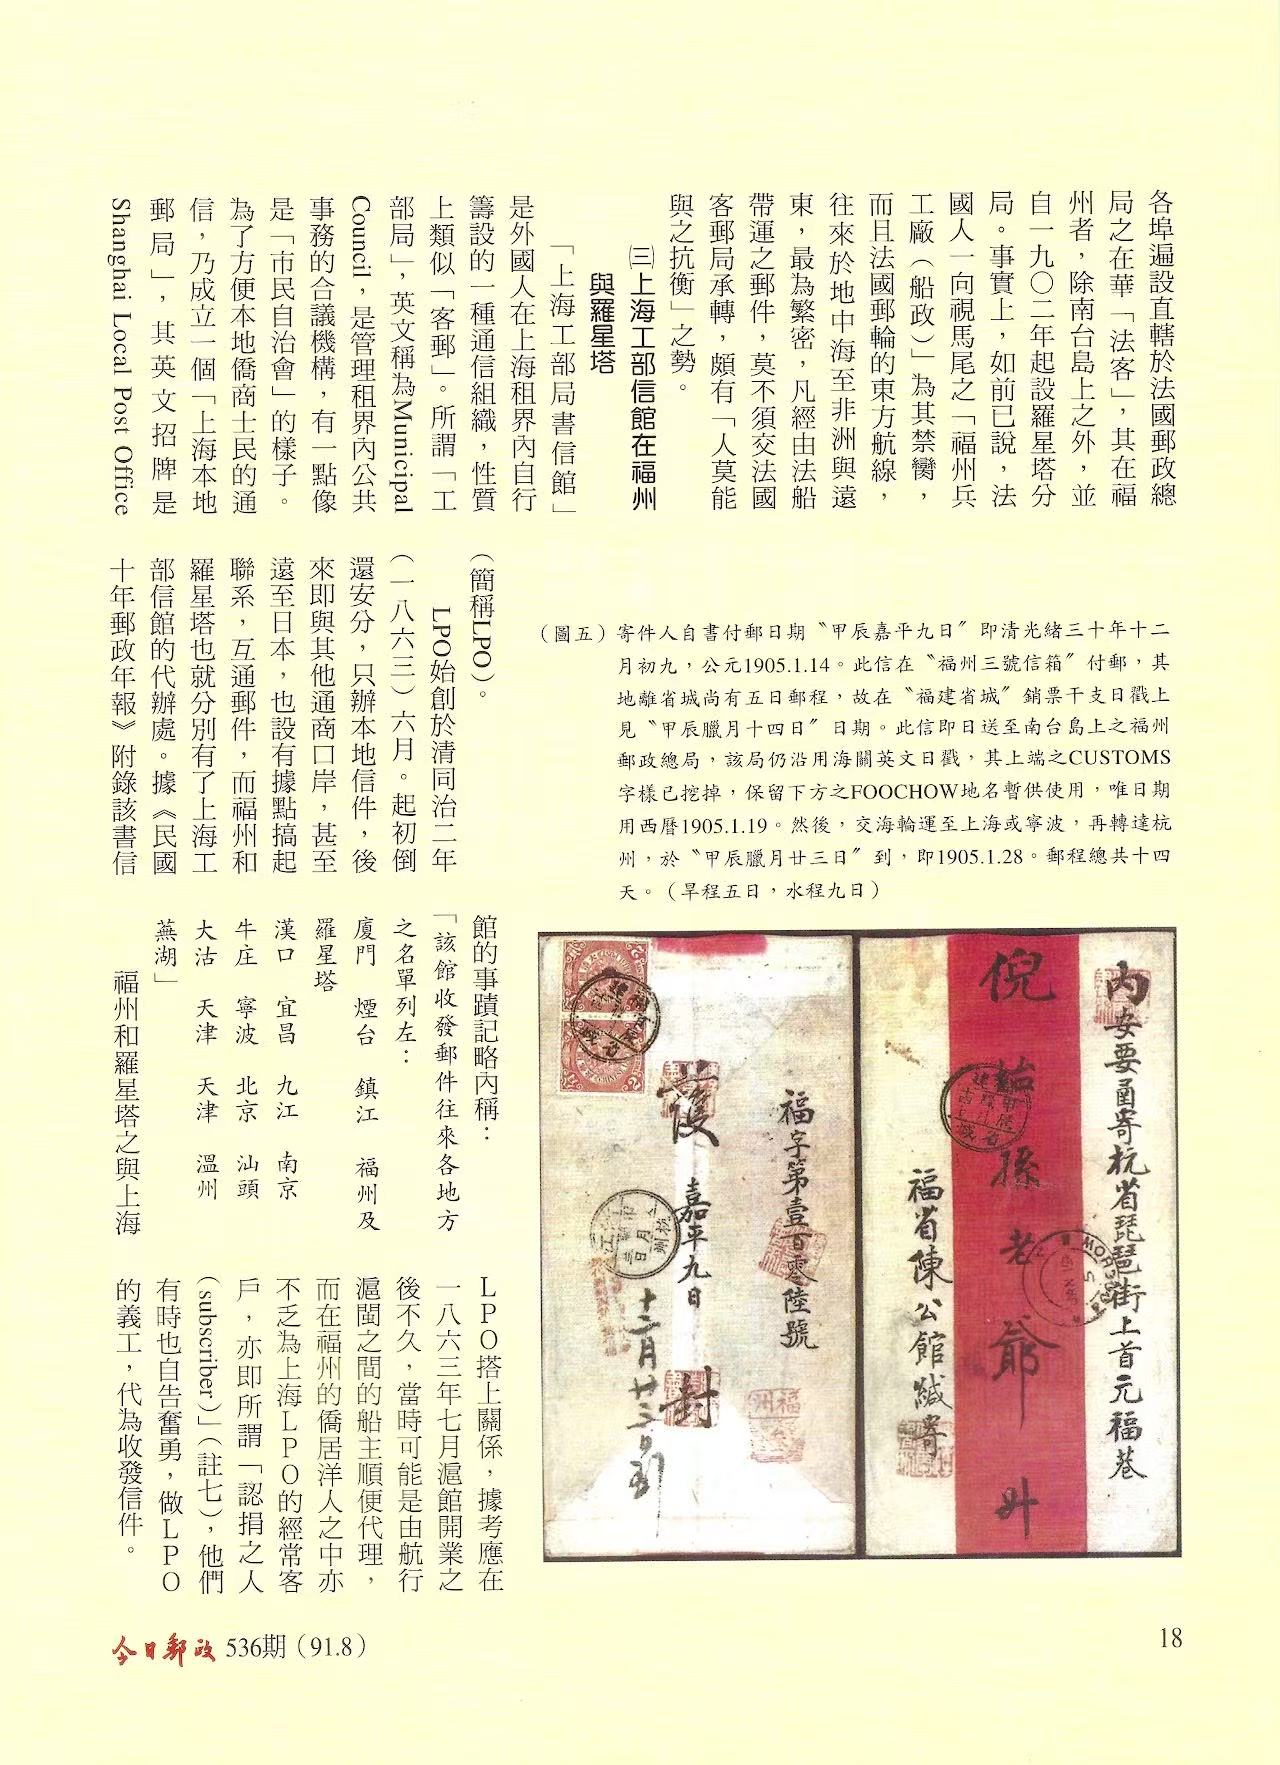 各埠遍設直轄於法國郵政總
局之在華「法客」，其在福
州者，除南台島上之外，並
自一九〇二年起設羅星塔分
局。事實上，如前已說，法
國人一向視馬尾之「福州兵
工廠（船政）」為其禁臠，
而且法國郵輪的東方航線，
往來於地中海至非洲與遠
東，最為繁密，凡經由法船
帶運之郵件，莫不須交法國
客郵局承轉，頗有「人莫能
與之抗衡」之勢。
㈢上海工部信館在福州
與羅星塔
「上海工部局書信館」
是外國人在上海租界內自行
籌設的一種通信組織，性質
上類似「客郵」。所謂「工
部局」，英文稱為Municipal
Council，是管理租界內公共
事務的合議機構，有一點像
是「市民自治會」的樣子。
為了方便本地僑商士民的通
信，乃成立一個「上海本地
郵局」，其英文招牌是
Shanghai Local Post Office
（簡稱LPO）。
LPO始創於清同治二年
（一八六三）六月。起初倒
還安分，只辦本地信件，後
來即與其他通商口岸，甚至
遠至日本，也設有據點搞起
聯系，互通郵件，而福州和
羅星塔也就分別有了上海工
部信館的代辦處。據《民國
十年郵政年報》附錄該書信
館的事蹟記略內稱：
「該館收發郵件往來各地方
之名單列左：
廈門 煙台 鎮江 福州及
羅星塔
漢口 宜昌 九江 南京
牛庄 寧波 北京 汕頭
大沽 天津 天津 溫州
蕪湖」
福州和羅星塔之與上海
LPO搭上關係，據考應在
一八六三年七月滬館開業之
後不久，當時可能是由航行
滬閩之間的船主順便代理，
而在福州的僑居洋人之中亦
不乏為上海LPO的經常客
戶，亦即所謂「認捐之人
(subscriber)」（註七），他們
有時也自告奮勇，做LPO
的義工，代為收發信件。
（圖五）寄件人自書付郵日期〝甲辰嘉平九日〞即清光緒三十年十二
月初九，公元1905.1.14。此信在〝福州三號信箱〞付郵，其
地離省城尚有五日郵程，故在〝福建省城〞銷票干支日戳上
見〝甲辰臘月十四日〞日期。此信即日送至南台島上之福州
郵政總局，該局仍沿用海關英文日戳，其上端之CUSTOMS
字樣已挖掉，保留下方之FOOCHOW地名暫供使用，唯日期
用西曆1905.1.19。然後，交海輪運至上海或寧波，再轉達杭
州，於〝甲辰臘月廿三日〞到，即1905.1.28。郵程總共十四
天。（旱程五日，水程九日）
內安要函寄杭省琵琶街上首元福巷
倪 孫老爺升
福省陳公館緘寄
福字第壹百零陸號
護 嘉平九日 封
十二月廿三日到
今日郵政 536期（91.8）
18